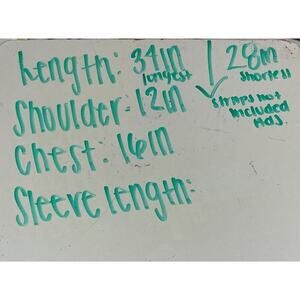 Length: 34in / 28in
longest shortest
Shoulder - 12in
straps not
included
Chest: 16in
Sleeve length: